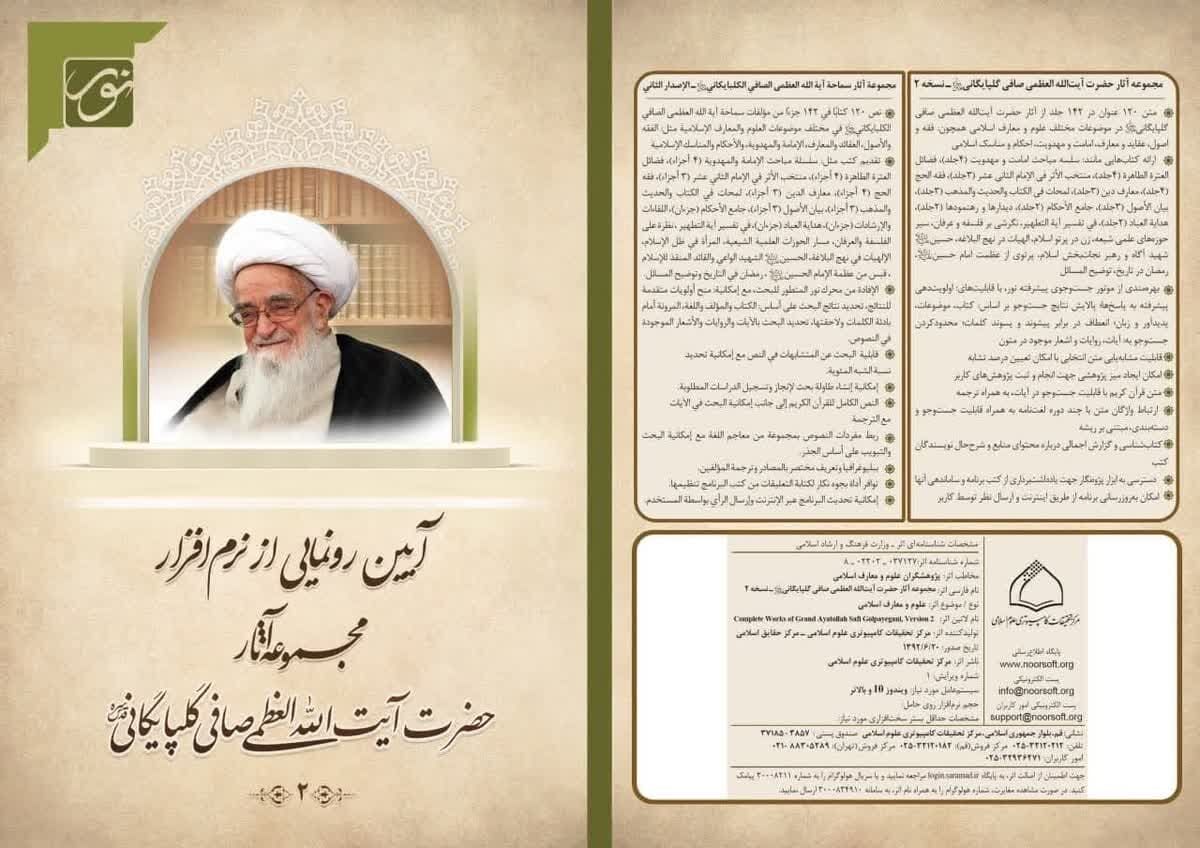 نور
آیین رونمایی از نرم افزار
مجموعه آثار
حضرت آیت الله العظمی صافی گلپایگانی
۲
مجموعه آثار حضرت آیت‌الله العظمی صافی گلپایگانی ـ نسخه ۲
متن ۱۲۰ عنوان در ۱۴۲ جلد از آثار حضرت آیت‌الله العظمی صافی
گلپایگانی در موضوعات مختلف علوم و معارف اسلامی همچون: فقه و
اصول، عقاید و معارف، امامت و مهدویت، احکام و مناسک اسلامی
ارائه کتاب‌هایی مانند: سلسه مباحث امامت و مهدویت (۴جلد)، فضائل
العترة الطاهرة (۴جلد)، منتخب الأثر في الإمام الثاني عشر (۳جلد)، فقه الحج
(۴جلد)، معارف دین (۳جلد)، لمحات في الکتاب والحدیث والمذهب (۳جلد)،
بیان الأصول (۳جلد)، جامع الأحکام (۲جلد)، دیدارها و رهنمودها (۲جلد)،
هدایة العباد (۲جلد)، في تفسیر آیة التطهیر، نگرشی بر فلسفه و عرفان، سیر
حوزه‌های علمی شیعه، زن در پرتو اسلام، الهیات در نهج البلاغه، حسین
شهید آگاه و رهبر نجات‌بخش اسلام، پرتوی از عظمت امام حسین،
رمضان در تاریخ، توضیح المسائل
بهره‌مندی از موتور جست‌وجوی پیشرفته نور، با قابلیت‌های: اولویت‌دهی
پیشرفته به پاسخ‌ها؛ پالایش نتایج جست‌وجو بر اساس: کتاب، موضوعات،
پدیدآور و زبان؛ انعطاف در برابر پیشوند و پسوند کلمات؛ محدودکردن
جست‌وجو به: آیات، روایات و اشعار موجود در متون
قابلیت مشابه‌یابی متن انتخابی با امکان تعیین درصد تشابه
امکان ایجاد میز پژوهشی جهت انجام و ثبت پژوهش‌های کاربر
متن قرآن کریم با قابلیت جست‌وجو در آیات، به همراه ترجمه
ارتباط واژگان متن با چند دوره لغت‌نامه به همراه قابلیت جست‌وجو و
دسته‌بندی، مبتنی بر ریشه
کتاب‌شناسی و گزارش اجمالی درباره محتوای منابع و شرح‌حال نویسندگان
کتب
دسترسی به ابزار پژوه‌نگار جهت یادداشت‌برداری از کتب برنامه و ساماندهی آنها
امکان به‌روزرسانی برنامه از طریق اینترنت و ارسال نظر توسط کاربر
مجموعة آثار سماحة آیة الله العظمی الصافي الکلبایکاني ـ الإصدار الثاني
نص ۱۲۰ کتابًا في ۱۴۲ جزءًا من مؤلفات سماحة آیة الله العظمی الصافي
الکلبایکاني في مختلف موضوعات العلوم والمعارف الإسلامیة مثل: الفقه
والأصول، العقائد والمعارف، الإمامة والمهدویة، والأحکام والمناسك الإسلامیة
تقدیم کتب مثل: سلسلة مباحث الإمامة والمهدویة (۴ أجزاء)، فضائل
العترة الطاهرة (۴ أجزاء)، منتخب الأثر في الإمام الثاني عشر (۳ أجزاء)، فقه
الحج (۴ أجزاء)، معارف الدین (۳ أجزاء)، لمحات في الکتاب والحدیث
والمذهب (۳ أجزاء)، بیان الأصول (۳ أجزاء)، جامع الأحکام (جزءان)، اللقاءات
والإرشادات (جزءان)، هدایة العباد (جزءان)، في تفسیر آیة التطهیر ، نظرة علی
الفلسفة والعرفان، مسار الحوزات العلمیة الشیعیة، المرأة في ظل الإسلام،
الإلهیات في نهج البلاغة، الحسین الشهید الواعي والقائد المنقذ للإسلام
، قبس من عظمة الإمام الحسین ، رمضان في التاریخ وتوضیح المسائل.
الإفادة من محرك نور المتطور للبحث، مع إمکانیة: منح أولویات متقدمة
للنتائج، تحدید نتائج البحث علی أساس: الکتاب والمؤلف واللغة، المرونة أمام
بادئة الکلمات ولاحقتها، تحدید البحث بالآیات والروایات والأشعار الموجودة
في النصوص.
قابلیة البحث عن المتشابهات في النص مع إمکانیة تحدید
نسبة الشبه المئویة.
إمکانیة إنشاء طاولة بحث لإنجاز وتسجیل الدراسات المطلوبة.
النص الکامل للقرآن الکریم إلی جانب إمکانیة البحث في الآیات
مع الترجمة.
ربط مفردات النصوص بمجموعة من معاجم اللغة مع إمکانیة البحث
والتبویب علی أساس الجذر.
ببلیوغرافیا وتعریف مختصر بالمصادر وترجمة المؤلفین.
توافر أداة بجوه نکار لکتابة التعلیقات من کتب البرنامج تنظیمها.
إمکانیة تحدیث البرنامج عبر الإنترنت وإرسال الرأي بواسطة المستخدم.
مرکز تحقیقات کامپیوتری علوم اسلامی
پایگاه اطلاع‌رسانی
www.noorsoft.org
پست الکترونیکی
info@noorsoft.org
پست الکترونیکی امور کاربران
support@noorsoft.org
مشخصات شناسنامه‌ای اثر ـ وزارت فرهنگ و ارشاد اسلامی
شماره شناسنامه اثر: ۰۳۷۱۲۷ ـ ۰۲۲۰۲ ـ ۸
مخاطب اثر: پژوهشگران علوم و معارف اسلامی
نام فارسی اثر: مجموعه آثار حضرت آیت‌الله العظمی صافی گلپایگانی ـ نسخه ۲
نوع / موضوع اثر: علوم و معارف اسلامی
نام لاتین اثر: Complete Works of Grand Ayatollah Safi Golpayegani, Version 2
تولیدکننده اثر: مرکز تحقیقات کامپیوتری علوم اسلامی ـ مرکز حقایق اسلامی
تاریخ صدور: ۱۳۹۲/۶/۲۰
ناشر اثر: مرکز تحقیقات کامپیوتری علوم اسلامی
شماره ویرایش: ۱
سیستم‌عامل مورد نیاز: ویندوز 10 و بالاتر
حجم نرم‌افزار روی حامل:
مشخصات حداقل بستر سخت‌افزاری مورد نیاز:
نشانی: قم، بلوار جمهوری اسلامی، مرکز تحقیقات کامپیوتری علوم اسلامی صندوق پستی: ۳۸۵۷-۳۷۱۸۵
تلفن: ۳۲۱۲۰۲۱۲-۰۲۵ مرکز فروش(قم): ۳۲۱۲۰۱۸۲-۰۲۵ مرکز فروش(تهران): ۸۸۳۰۵۲۸۹-۰۲۱
امور کاربران: ۳۲۹۳۶۴۷۱-۰۲۵
جهت اطمینان از اصالت اثر، به پایگاه login.saramad.ir مراجعه نمایید و یا سریال هولوگرام را به شماره ۳۰۰۰۸۲۱۱ پیامک
کنید. در صورت مشاهده مغایرت، شماره هولوگرام را به همراه نام اثر، به سامانه ۳۰۰۰۸۳۴۹۱۰ ارسال نمایید.